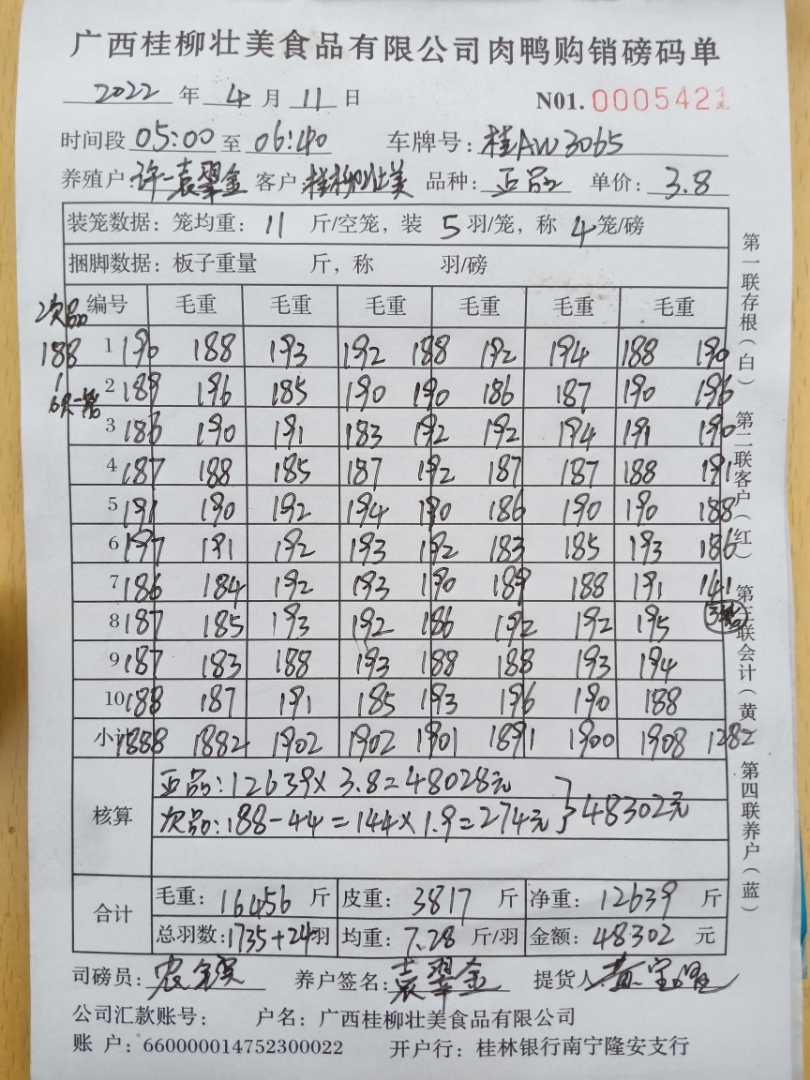 广西桂柳壮美食品有限公司肉鸭购销磅码单
2022 年 4 月 11 日 N01. 0005421
时间段 05:00 至 06:40 车牌号: 桂AW3065
养殖户: 许一袁翠金 客户 桂柳壮美 品种: 正品 单价: 3.8
装笼数据: 笼均重: 11 斤/空笼, 装 5 羽/笼, 称 4 笼/磅
捆脚数据: 板子重量 斤, 称 羽/磅
次品 编号 毛重 毛重 毛重 毛重 毛重 毛重
188 1 190 188 193 192 188 192 194 188 190
2 189 196 185 190 190 186 187 190 196
3 186 190 191 183 192 192 194 191 190
4 187 188 185 187 192 187 187 188 191
5 191 190 192 194 190 186 190 190 188
6 197 191 192 193 192 183 185 193 186
7 186 184 192 193 190 189 188 191 141
8 187 185 193 192 186 192 192 195
9 187 183 188 193 188 188 193 194
10 188 187 191 185 193 196 190 188
小计 1888 1882 1902 1902 1901 1891 1900 1908 1282
核算 正品: 12639 × 3.8 = 48028元
次品: 188 - 44 = 144 × 1.9 = 274元 } 48302元
合计 毛重: 16456 斤 皮重: 3817 斤 净重: 12639 斤
总羽数: 1735+24 羽 均重: 7.28 斤/羽 金额: 48302 元
司磅员: 养户签名: 袁翠金 提货人
公司汇款账号: 户名: 广西桂柳壮美食品有限公司
账 户: 660000014752300022 开户行: 桂林银行南宁隆安支行
第一联存根(白)
第二联客户(红)
第三联会计(黄)
第四联养户(蓝)